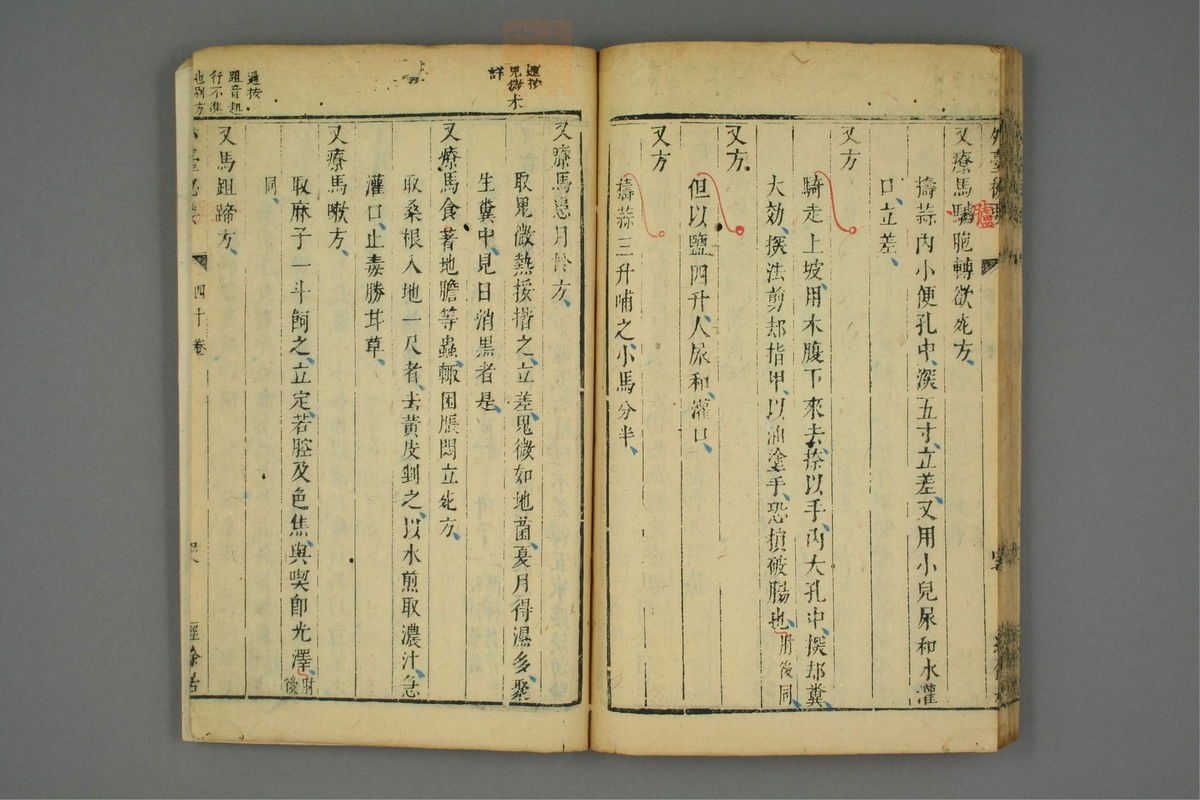 又療馬驢胞轉欲死方
擣蒜內小便孔中深五寸立差又用小兒尿和水灌
口立差
又方
騎走上坡用木腹下來去捺以手內大孔中探却糞
大効探法剪却指甲以油塗手恐損破腸也肘後同
又方
但以鹽四升人尿和灌口
又方
擣蒜三升哺之小馬分半
又療馬患月肣方
取鬼微熱挼揩之立差鬼微如地菌夏月得濕多聚
生糞中見日消黑者是
又療馬食著地膽等蟲輒困脹悶立死方
取桑根入地一尺者去黃皮剉之以水煎取濃汁急
灌口止毒勝茸草
又療馬嗽方
取麻子一斗飼之立定若腔及色焦與喫卽光澤肘後
同
又馬跙蹄方
四十卷
經餘居
按
鬼微未
詳
按
跙音
行不進
也